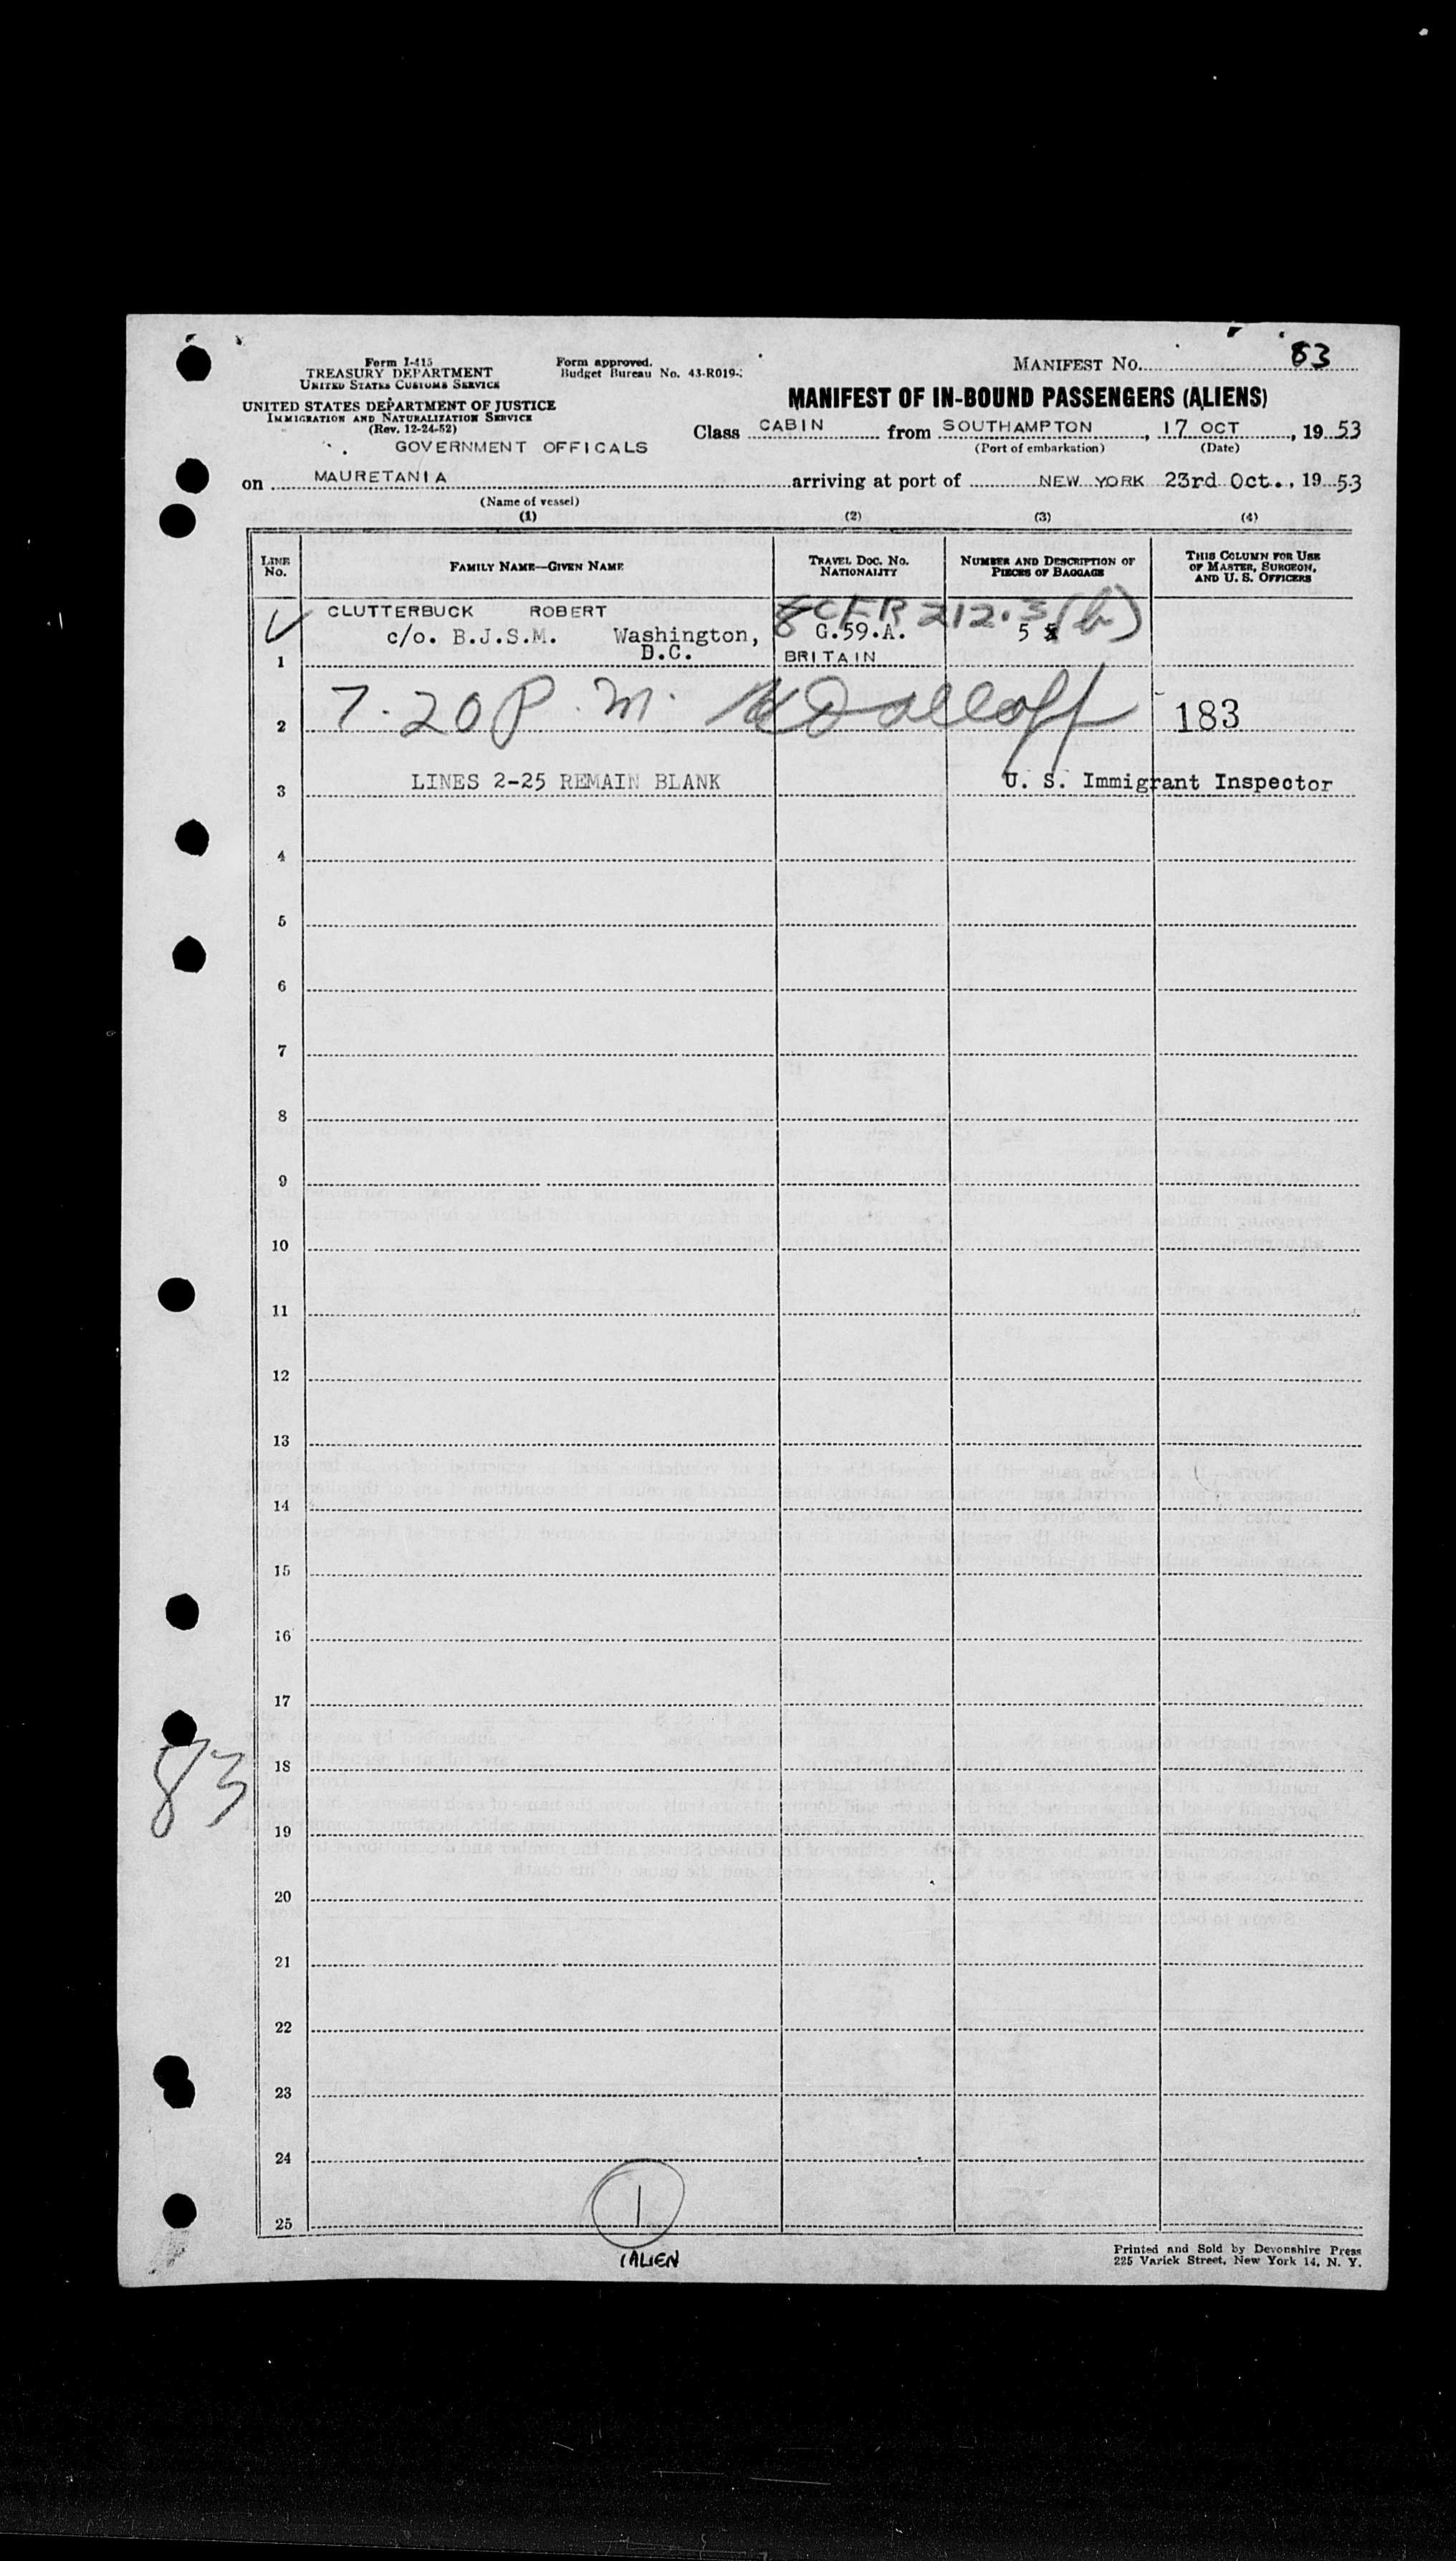 Form I-415
TREASURY DEPARTMENT
UNITED STATES CUSTOMS SERVICE
Form approved.
Budget Bureau No. 43-R019-
MANIFEST NO. 83
UNITED STATES DEPARTMENT OF JUSTICE
IMMIGRATION AND NATURALIZATION SERVICE
(Rev. 12-24-52)
MANIFEST OF IN-BOUND PASSENGERS (ALIENS)
GOVERNMENT OFFICALS
Class CABIN from SOUTHAMPTON, 17 OCT, 19 53
(Port of embarkation) (Date)
on MAURETANIA arriving at port of NEW YORK 23rd Oct., 19 53
(Name of vessel)
(1) (2) (3) (4)
LINE NO.
FAMILY NAME—GIVEN NAME
TRAVEL DOC. NO.
NATIONALITY
NUMBER AND DESCRIPTION OF
PIECES OF BAGGAGE
THIS COLUMN FOR USE
OF MASTER, SURGEON,
AND U. S. OFFICERS
CLUTTERBUCK ROBERT 8CFR 212.3(b)
c/o. B.J.S.M. Washington, G.59.A. 5
D.C.
1 BRITAIN
2 7.20 P.M. 183
3 LINES 2-25 REMAIN BLANK U. S. Immigrant Inspector
4
5
6
7
8
9
10
11
12
13
14
15
16
17
18
83
19
20
21
22
23
24
1
25
1 ALIEN
Printed and Sold by Devonshire Press
225 Varick Street, New York 14, N. Y.